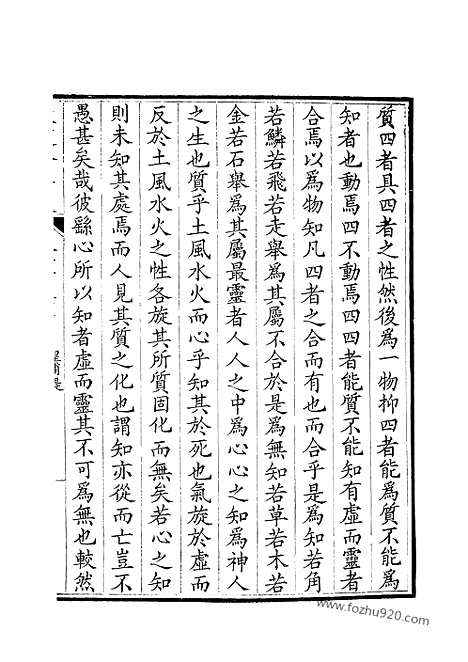 質四者具四者之性然後為一物抑四者能為質不能為
知者也動焉四不動焉四四者能質不能知有虛而靈者
合焉以為物知凡四者之合而有也而合乎是為知若角
若鱗若飛若走舉為其屬不合於是為無知若草若木若
金若石舉為其屬最靈者人人之中為心心之知為神人
之生也質乎土風水火而心乎知其於死也氣旋於虛而
反於土風水火之性各旋其所質固化而無矣若心之知
則未知其處焉而人見其質之化也謂知亦從而亡豈不
愚甚矣哉彼繇心所以知者虛而靈其不可為無也較然
www.fozhu920.com